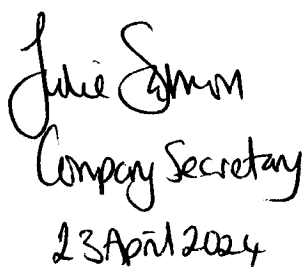 Julie Salmon
Company Secretary
23 April 2024